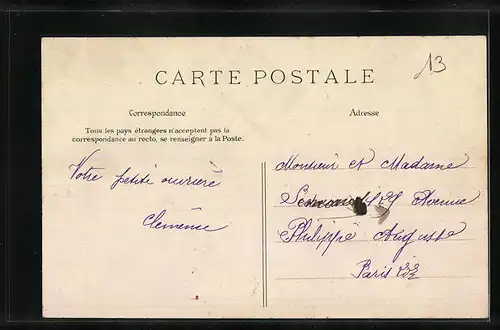 13
CARTE POSTALE
Correspondance
Adresse
Tous les pays étrangers n'acceptent pas la
correspondance au recto, se renseigner à la Poste.
Votre petite ouvrière
Clémence
Monsieur et Madame
Avenue
Philippe Auguste
Paris